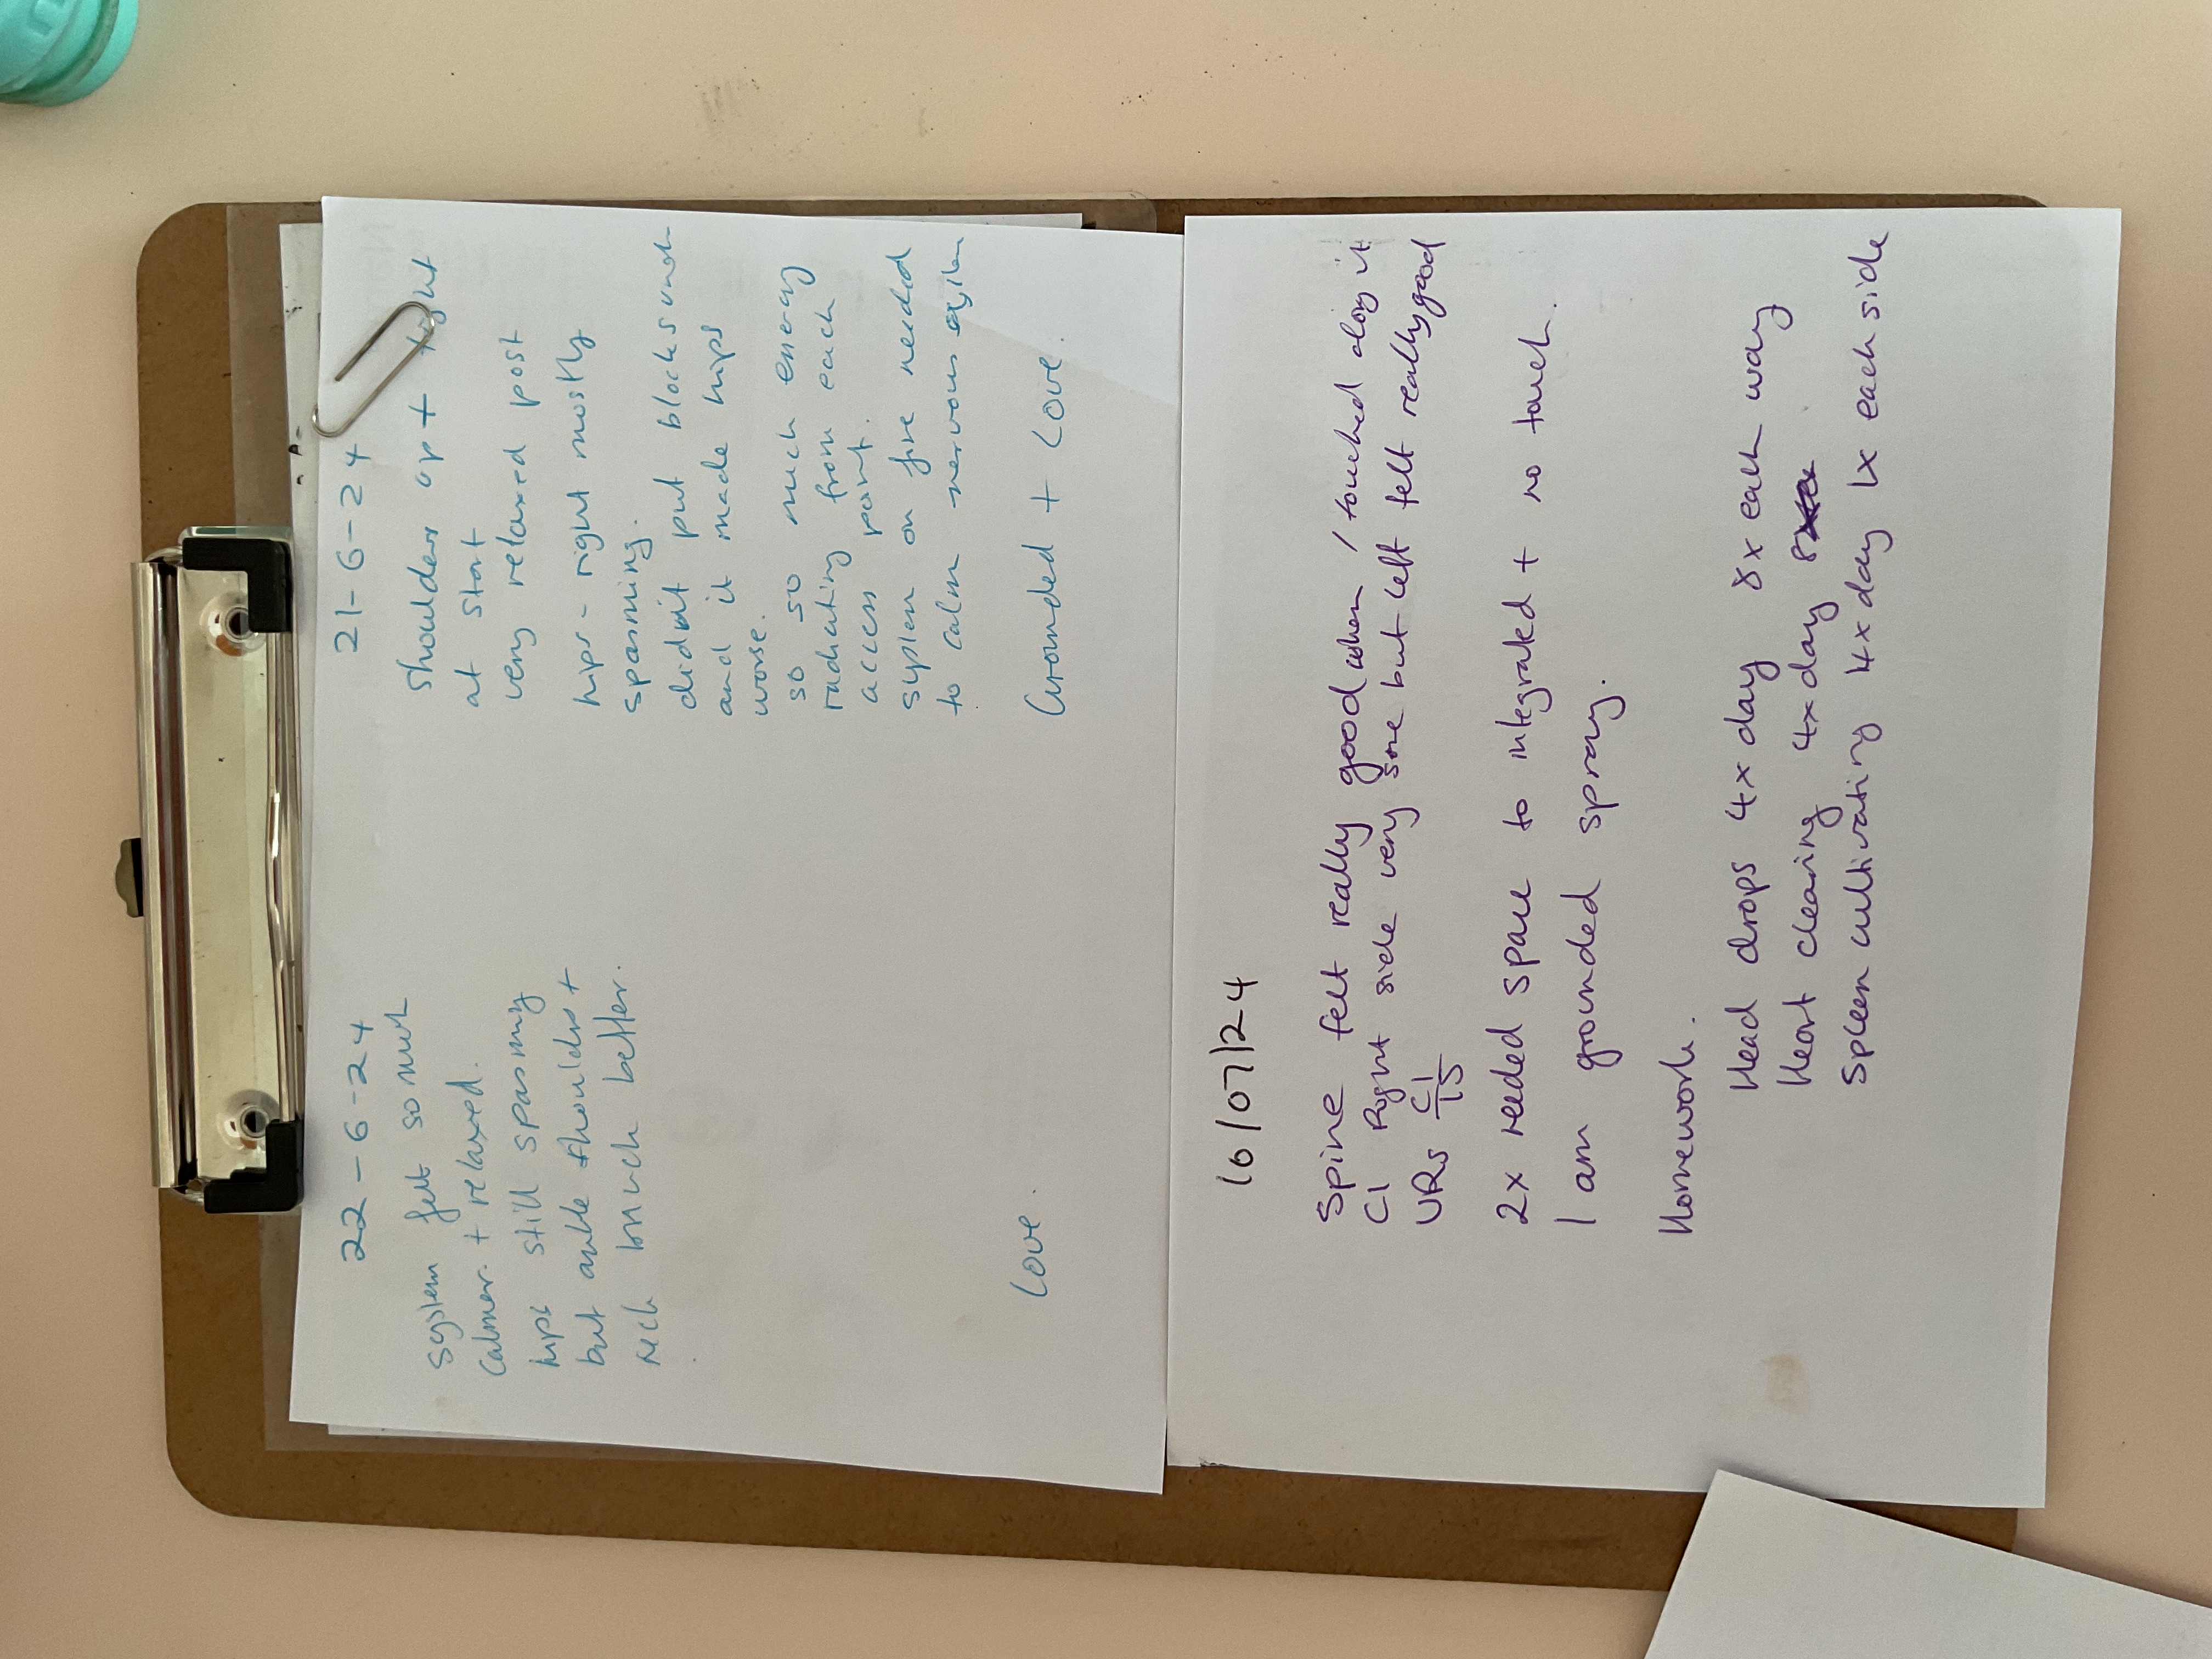 21-6-24
shoulders up + tight
at start
very relaxed post
hips - right mostly
spasming.
didnt put blocks und
and it made hips
worse.
so so much energy
radiating from each
access point.
system on fire needed
to calm nervous system
Grounded + Love.
22-6-24
system felt so much
calmer + relaxed.
hips still spasming
but ankle shoulders +
neck much better.
Love.
16/07/24
Spine felt really good when / touched along it
C1 Right side very sore but left felt really good
URs C1/15
2x needed space to integrated + no touch.
I am grounded spray.
Homework.
Head drops 4x day 8x each way
Heart clearing 4x day 8x
Spleen cultivating 4x day 1x each side